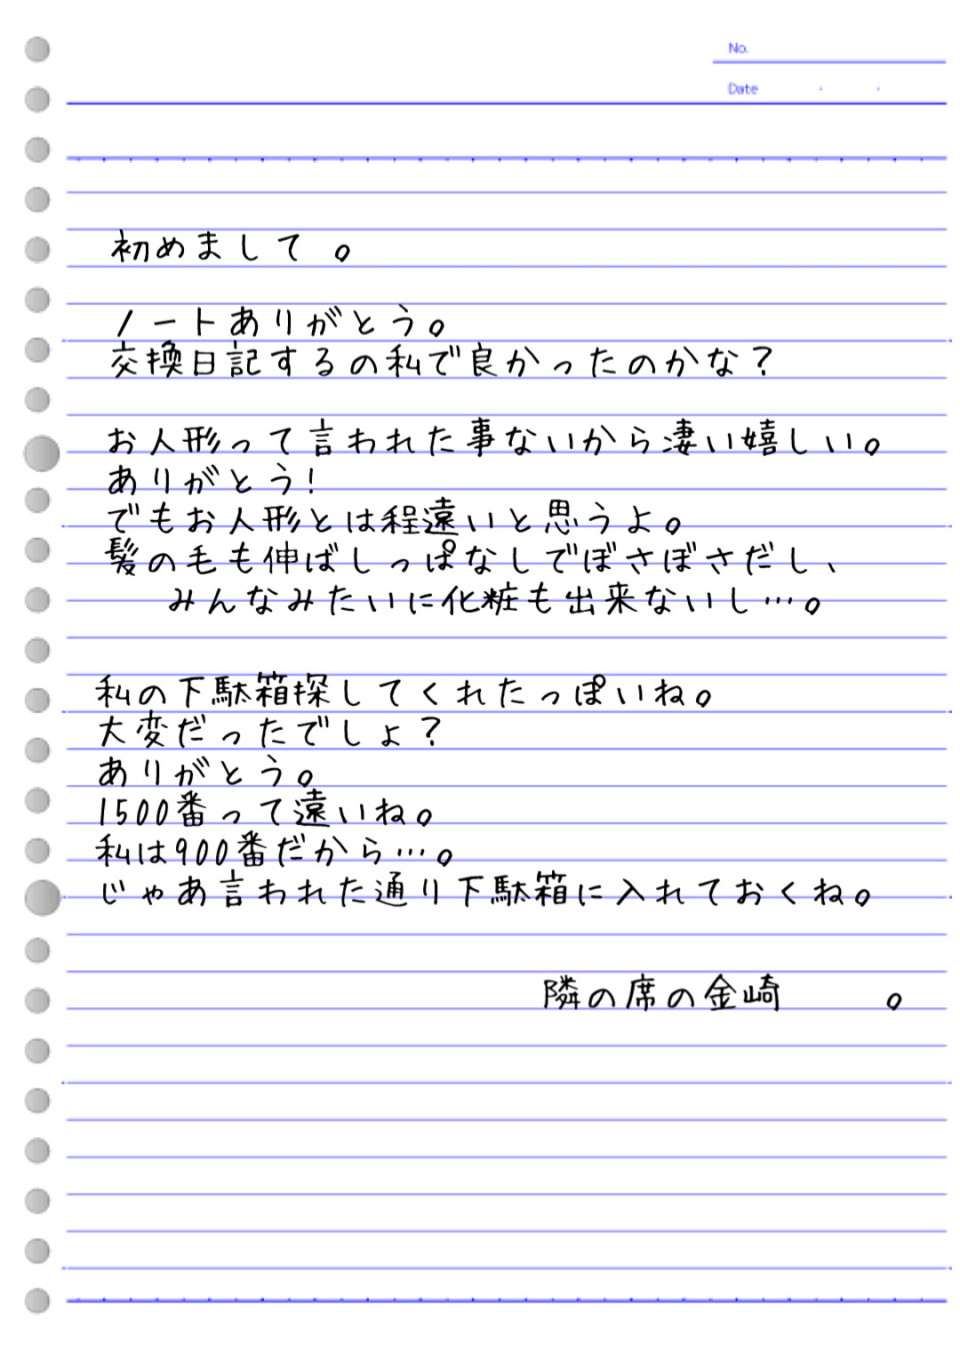 No.
Date
初めまして 。
ノートありがとう。
交換日記するの私で良かったのかな？
お人形って言われた事ないから凄い嬉しい。
ありがとう!
でもお人形とは程遠いと思うよ。
髪の毛も伸ばしっぱなしでぼさぼさだし、
みんなみたいに化粧も出来ないし…。
私の下駄箱探してくれたっぽいね。
大変だったでしょ？
ありがとう。
1500番って遠いね。
私は900番だから…。
じゃあ言われた通り下駄箱に入れておくね。
隣の席の金崎 。